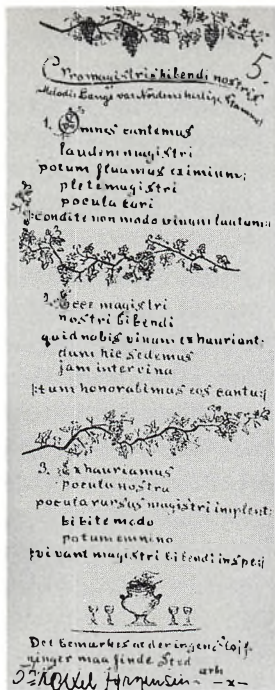 5.
Pro magistris bibendi nostris
Melodi: Længe var Nordens herlige Stamme
1. Omnes cantemus
laudem magistri
potum fluamus eximium:
plete magistri
pocula cari
|:condite non modo vinum lautum:|
2. Ecce magistri
nostri bibendi
quid nobis vinum exhauriant:
dum hic sedemus
jam inter vina
|:tum honorabimus eos cantu:|
3. Exhauriamus
pocula nostra
pocula rursus magistri implent:
bibite modo
potum omnino
|:vivant magistri bibendi in spe:|
Det bemærkes at der ingen
maa finde Sted
Jørgensen arh -x-